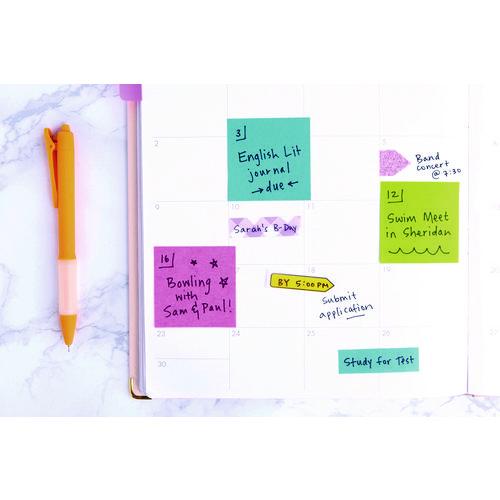 3
English Lit
journal
→due←
2
5
Band
concert
@ 7:30
12
Swim Meet
in Sheridan
9
10
11
Sarah's B-Day
16
Bowling
with
Sam & Paul!
18
19
BY 5:00 PM
submit
application
23
24
25
26
Study for Test
30